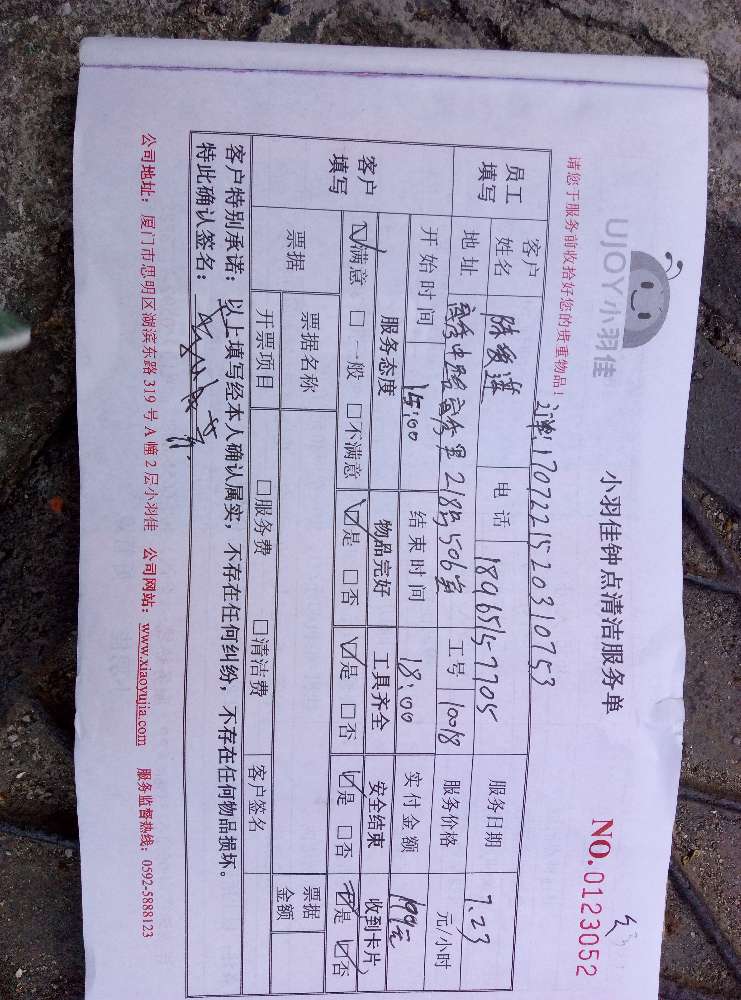 UJOY小羽佳
小羽佳钟点清洁服务单
NO.0123052
请您于服务前收拾好您的贵重物品！
1707221520310753
员工填写
客户姓名
电话
18965157705
服务日期
7.23
地址
218号506室
工号
10018
服务价格
元/小时
开始时间
15:00
结束时间
18:00
实付金额
199元
客户填写
服务态度
物品完好
工具齐全
安全结束
收到卡片
☑满意 □一般 □不满意
☑是 □否
☑是 □否
☑是 □否
☑是 ☑否
票据
票据名称
票据金额
开票项目
□服务费 □清洁费
客户签名
客户特别承诺：以上填写经本人确认属实，不存在任何纠纷，不存在任何物品损坏。
特此确认签名：
公司地址：厦门市思明区湖滨东路 319 号 A 幢 2 层小羽佳 公司网站：www.xiaoyujia.com 服务监督热线：0592-5888123